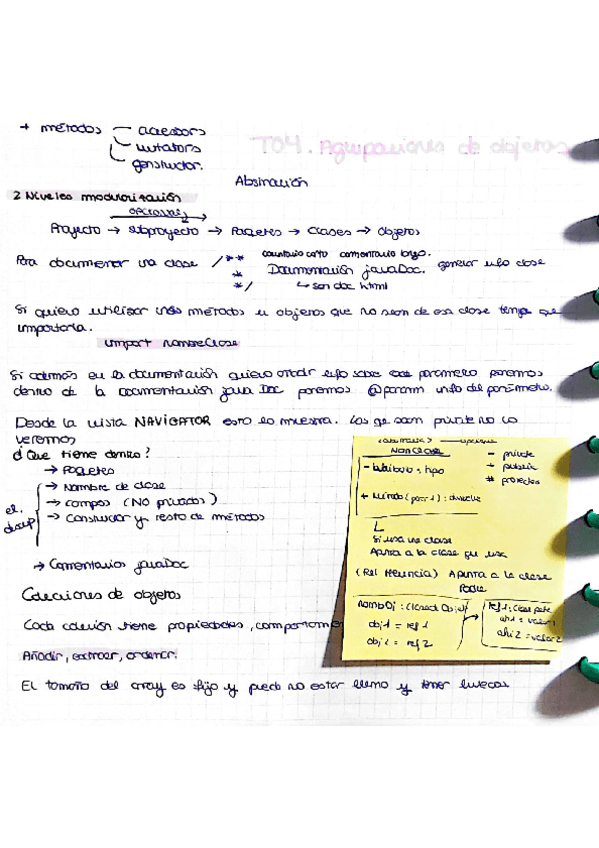 + métodos accesors
mutators
constructor.
T04. Agrupaciones de objetos
Abstracción
2 Niveles modularización
opcional
Proyecto → subproyecto → Paquetes → Clases → Objetos
Para documentar una clase /** comentario corto comentario largo.
* Documentación javaDoc. generar info clase
*/ ↳ son doc html
Si quiero utilizar más métodos u objetos que no sean de esa clase tengo que
importarla.
import nombreClase
Si además en la documentación quiero añadir info sobre ese parámetro ponemos
dentro de la documentación java Doc ponemos @param info del parámetro.
Desde la vista NAVIGATOR esto lo muestra. Las que sean private no lo
veremos
¿Que tiene dentro?
→ Paquetes
→ Nombre de clase
→ campos (NO privados)
→ Constructor y resto de métodos
el.
→ Comentarios javaDoc
Colecciones de objetos
Cada colección tiene propiedades, comportamie
Añadir, extraer, ordenar.
El tamaño del array es fijo y puede no estar lleno y tener huecos
NomClase
- private
+ public
# protected
- Atributo: tipo
+ Método (par 1): devuelve
Si usa una clase
Apunta a la clase que usa
(Rel Herencia) Apunta a la clase
Padre
nombOj: ClaseObjet
obj1 = ref 1
obj2 = ref 2
ref1: Clase
atri1 = valor 1
atri2 = valor 2